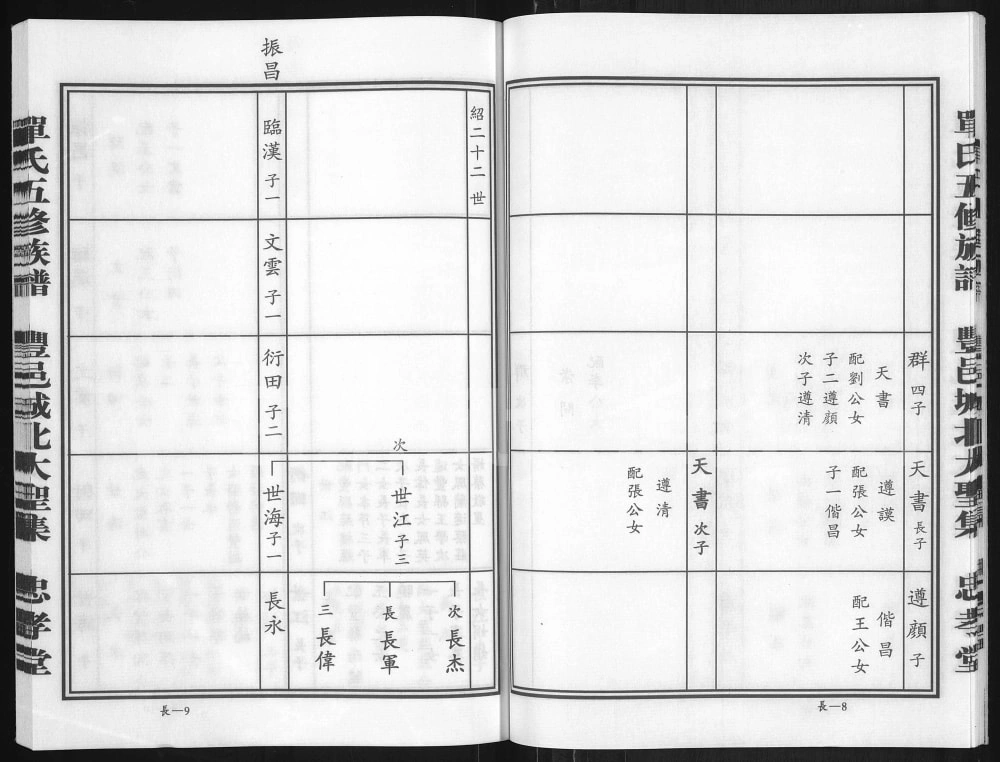 單氏五修族譜 豐邑城北大聖集 忠孝堂
群 四子
天書
配劉公女
子二遵顔
次子遵清
天書 長子
遵謨
配張公女
子一偕昌
天書 次子
遵清
配張公女
遵顔 子
偕昌
配王公女
長—8
紹二十二世
振昌
臨漢 子一
文雲 子一
衍田 子二
次
世江 子三
世海 子一
次 長杰
長 長軍
三 長偉
長永
長—9
單氏五修族譜 豐邑城北大聖集 忠孝堂